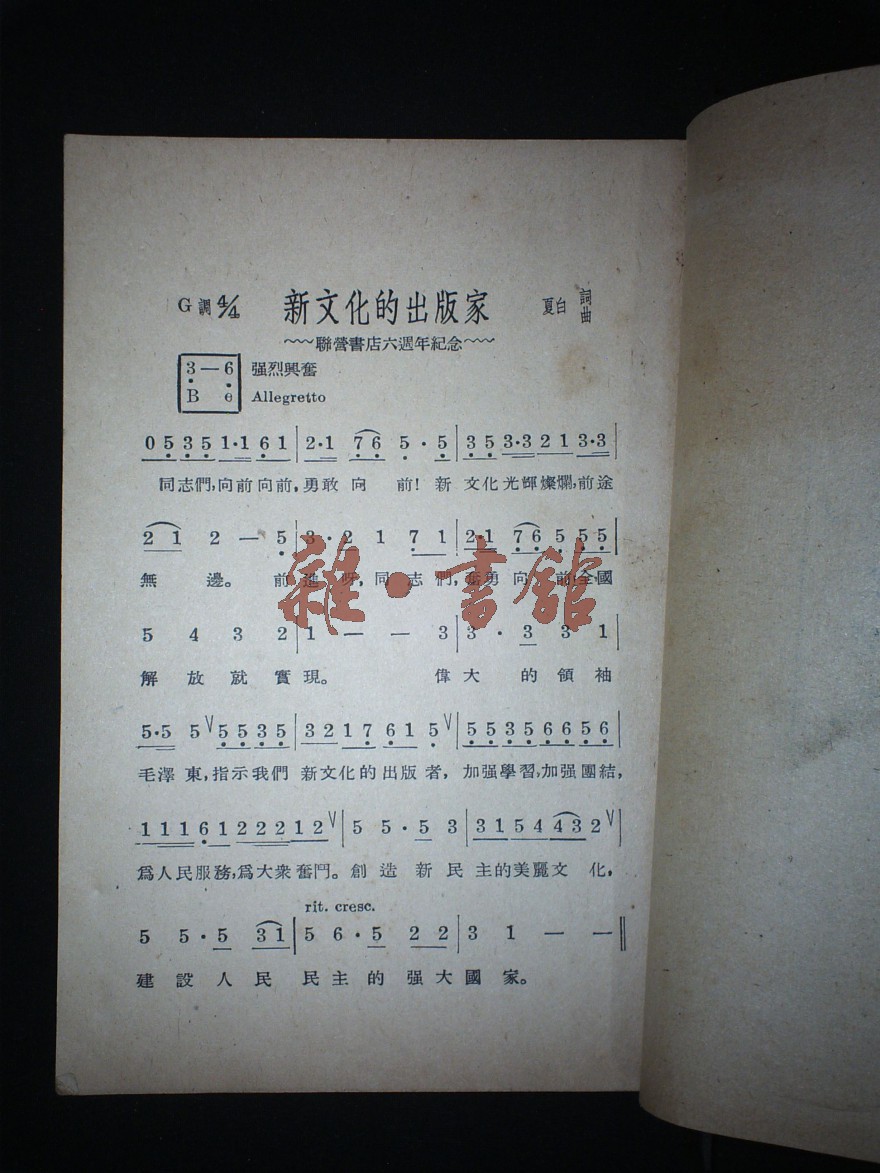 G調 4/4 新文化的出版家 夏白 詞曲
～～聯營書店六週年紀念～～
3—6 强烈興奮
B e Allegretto
0 5 3 5 1·1 6 1 | 2·1 7 6 5 · 5 | 3 5 3·3 2 1 3·3
同志們,向前向前,勇敢向前! 新文化光輝燦爛,前途
2 1 2 — 5 | 3 · 2 1 7 1 | 2·1 7 6 5 5 5 |
無邊。前進呀,同志們,奮勇向前!全國
雜·書舘
5 4 3 2 | 1 — — 3 | 3 · 3 3 1 |
解放就實現。 偉大的領袖
5·5 5 V 5 5 3 5 | 3 2 1 7 6 1 5 V | 5 5 3 5 6 6 5 6 |
毛澤東,指示我們 新文化的出版者, 加强學習,加强團結,
1 1 1 6 1 2 2 2 1 2 V | 5 5 · 5 3 | 3 1 5 4 4 3 2 V |
爲人民服務,爲大衆奮鬥。創造新民主的美麗文化,
rit. cresc.
5 5 · 5 3 1 | 5 6 · 5 2 2 | 3 1 — — ‖
建設人民民主的强大國家。